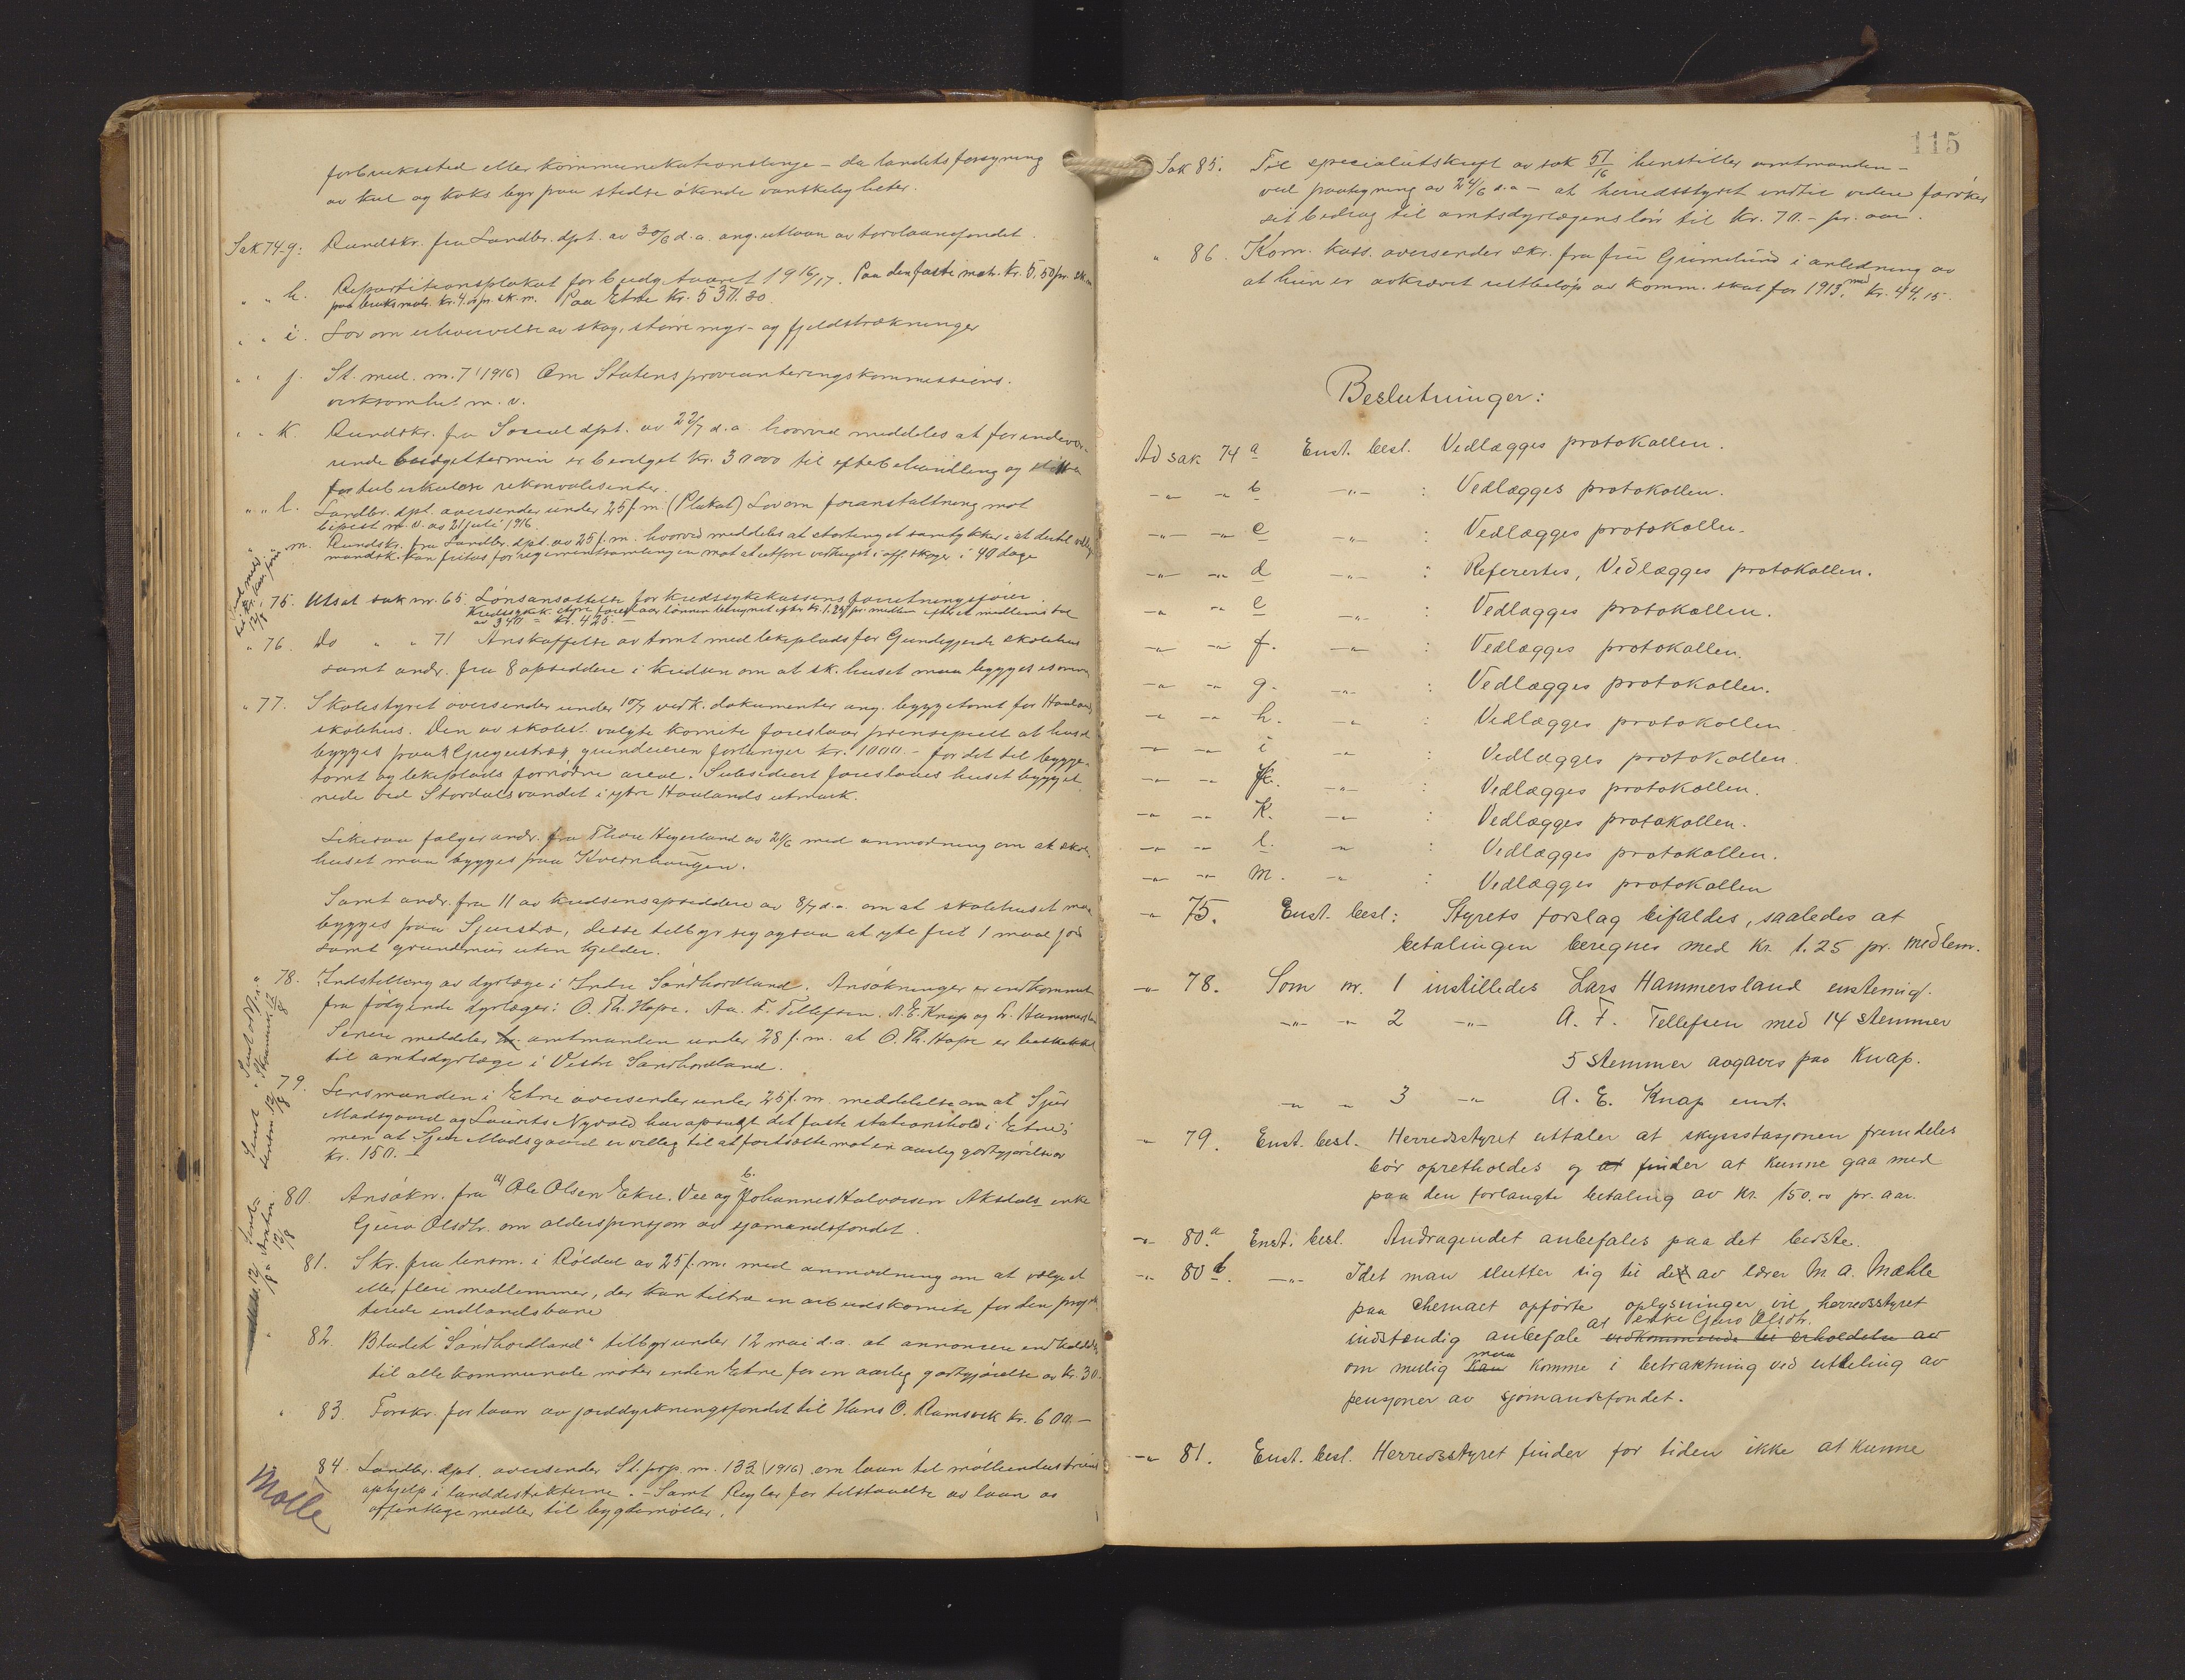 forbrukssted eller kommunikationslinje – da landets forsyning
av kul og koks byr paa stedse økende vanskeligheter.
Sak 74 g: Rundskr. fra Landbr. dpt. av 30/6 d.a. ang. utlaan av torvlaanefondet.
" " h. Repartitionsplakat for budgetaaret 1916/17. Paa den faste matr. kr. 5.50 pr. sk.m.
paa bruksmatr. kr. 4. pr. sk. m. Paa Etne kr. 5371.30
" " i. Lov om erhvervelse av skog, større myr- og fjeldstrækninger
" " j. St. med. nr. 7 (1916) Om Statens provianteringskommissions
virksomhet m. v.
" " K. Rundskr. fra Social dpt. av 22/7 d.a. hvorved meddeles at for indevæ-
rende budgettermin er bevilget kr. 30000 til efterbehandling og
for tuberkuløse rekonvalesenter.
" " l. Landbr. dpt. oversender under 25 f.m. (Plakat) Lov om foranstaltning mot
bipest m. v. av 21 juli 1916.
" " m. Rundskr. fra Landbr. dpt. av 25 f.m. hvorved meddeles at storting et samtykker i at dertil villig
mandsk. kan fritas for regimentsamlingen mot at utføre vedhugst i off. skoger i 40 dage
" 75. Utsat sak nr. 65. Lønsansættelse for kredssykekassens forretningsfører.
Kredssykek. styre foreslaar lønnen beregnet efter kr. 1.25 pr. medlem efter et medlemstal
av 340 = kr. 425.–
" 76. Do " " 71 Anskaffelse av tomt med lekeplads for Gundegjerde skolehus
samt andr. fra 8 opsiddere i kredsen om at sk. huset maa bygges i sommer
" 77. Skolestyret oversender under 10/7 vedk. dokumenter ang. byggetomt for Haaland
skolehus. Den av skolest. valgte komite foreslaar prinsipielt at huset
bygges paa Grigustræ, grundeieren forlanger kr. 1000.– for det til bygge-
tomt og lekeplads fornødne areal. Subsidiert foreslaaes huset bygget
nede ved Stordalsvandet i ytre Haalands utmark.
Likesaa følger andr. fra Thore Hegerland av 21/6 med anmodning om at skole
huset maa bygges paa Kvernhaugen.
Samt andr. fra 11 av kredsens opsiddere av 8/7 d.a. om at skolehuset maa
bygges paa Sjurstræ, disse tilbyr sig ogsaa at yte frit 1 maal jord
samt grundmur uten kjelder.
" 78. Indstilling av dyrlæge i Indre Søndhordland. Ansøkninger er indkommet
fra følgende dyrlæger: O. Th. Hope. Aa. F. Tellefsen. A. E. Knap og L. Hammersland
Senere meddeler amtmanden under 28 f.m. at O. Th. Hope er beskikket
til amtsdyrlæge i Vestre Søndhordland.
" 79. Lensmanden i Etne oversender under 25 f.m. meddelelse om at Sjur
Madsgaard og Laurits Nyvold har opsagt det faste stationshold i Etne;
men at Sjur Madsgaard er villig til at fortsætte mot en aarlig godtgjørelse av
kr. 150.–
80. Ansøkn. fra a) Ole Olsen Ekre, Vee og b. Johannes Halvorsen Aksdals enke
Guro Olsdtr. om alderspensjon av sjømandsfondet.
81. Skr. fra lensm. i Røldal av 25 f.m. med anmodning om at vælge et
eller flere medlemmer, der kan tiltræ en arbeidskomite for den projek
terede indlandsbane
82. Bladet "Søndhordland" tilbyr under 12 mai d.a. at annonsere indkaldelse
til alle kommunale møter inden Etne for en aarlig godtgjørelse av kr. 30.
" 83. Forskr. for laan av jorddyrkningsfondet til Hans O. Ramsvik kr. 600.–
84. Landbr. dpt. oversender St. prp. nr. 133 (1916) om laan til mølleindustriens
ophjelp i landdistrikterne. – Samt Regler for tilstaaelse av laan av
offentlige midler til bygdemøller.
Mølle
115
Sak 85. Til specialutskrift av sak 51/16 henstiller amtmanden –
ved paategning av 24/6 d.a – at herredsstyret indtil videre forøker
sit bedrag til amtsdyrlægens løn til kr. 70.– pr. aar.
" 86. Kom. kass. oversender skr. fra fru Grimelund i anledning av
at hun er avkrævet restbeløp av komm. skat for 1913, med kr. 44.15.
Beslutninger:
Ad sak 74 a Enst. besl. Vedlægges protokollen.
–"– –"– b –"– : Vedlægges protokollen.
–"– –"– c –"– : Vedlægges protokollen.
–"– –"– d –"– : Referertes, Vedlægges protokollen.
–"– –"– e –"– : Vedlægges protokollen.
–"– –"– f. –"– : Vedlægges protokollen.
–"– –"– g. –"– : Vedlægges protokollen.
–"– –"– h. –"– : Vedlægges protokollen.
–"– –"– i –"– : Vedlægges protokollen.
–"– –"– j. –"– : Vedlægges protokollen.
–"– –"– K. –"– : Vedlægges protokollen.
–"– –"– l. –"– : Vedlægges protokollen.
–"– –"– m. –"– : Vedlægges protokollen
–"– 75. Enst. besl: Styrets forslag bifaldes, saaledes at
betalingen beregnes med kr. 1.25 pr. medlem.
–"– 78. Som nr. 1 instilledes Lars Hammersland enstemig.
–"– –"– 2 –"– A. F. Tellefsen med 14 stemmer
5 stemmer avgaves paa Knap.
–"– –"– 3 –"– A. E. Knap enst.
–"– 79. Enst. besl. Herredsstyret uttaler at skysstasjonen fremdeles
bør opretholdes og at finder at kunne gaa med
paa den forlangte betaling av kr. 150.00 pr. aar.
–"– 80 a. Enst. besl. Andragendet anbefales paa det bedste.
–"– 80 b. –"– Idet man slutter sig til det av lærer M. A. Mæhle
paa skemaet opførte oplysninger vil herredsstyret
indstændig anbefale vedkommende til erholdelse av at enke Guro Olsdtr.
om mulig kan maa komme i betraktning ved utdeling av
pensjoner av sjømandsfondet.
–"– 81. Enst. besl. Herredsstyret finder for tiden ikke at kunne